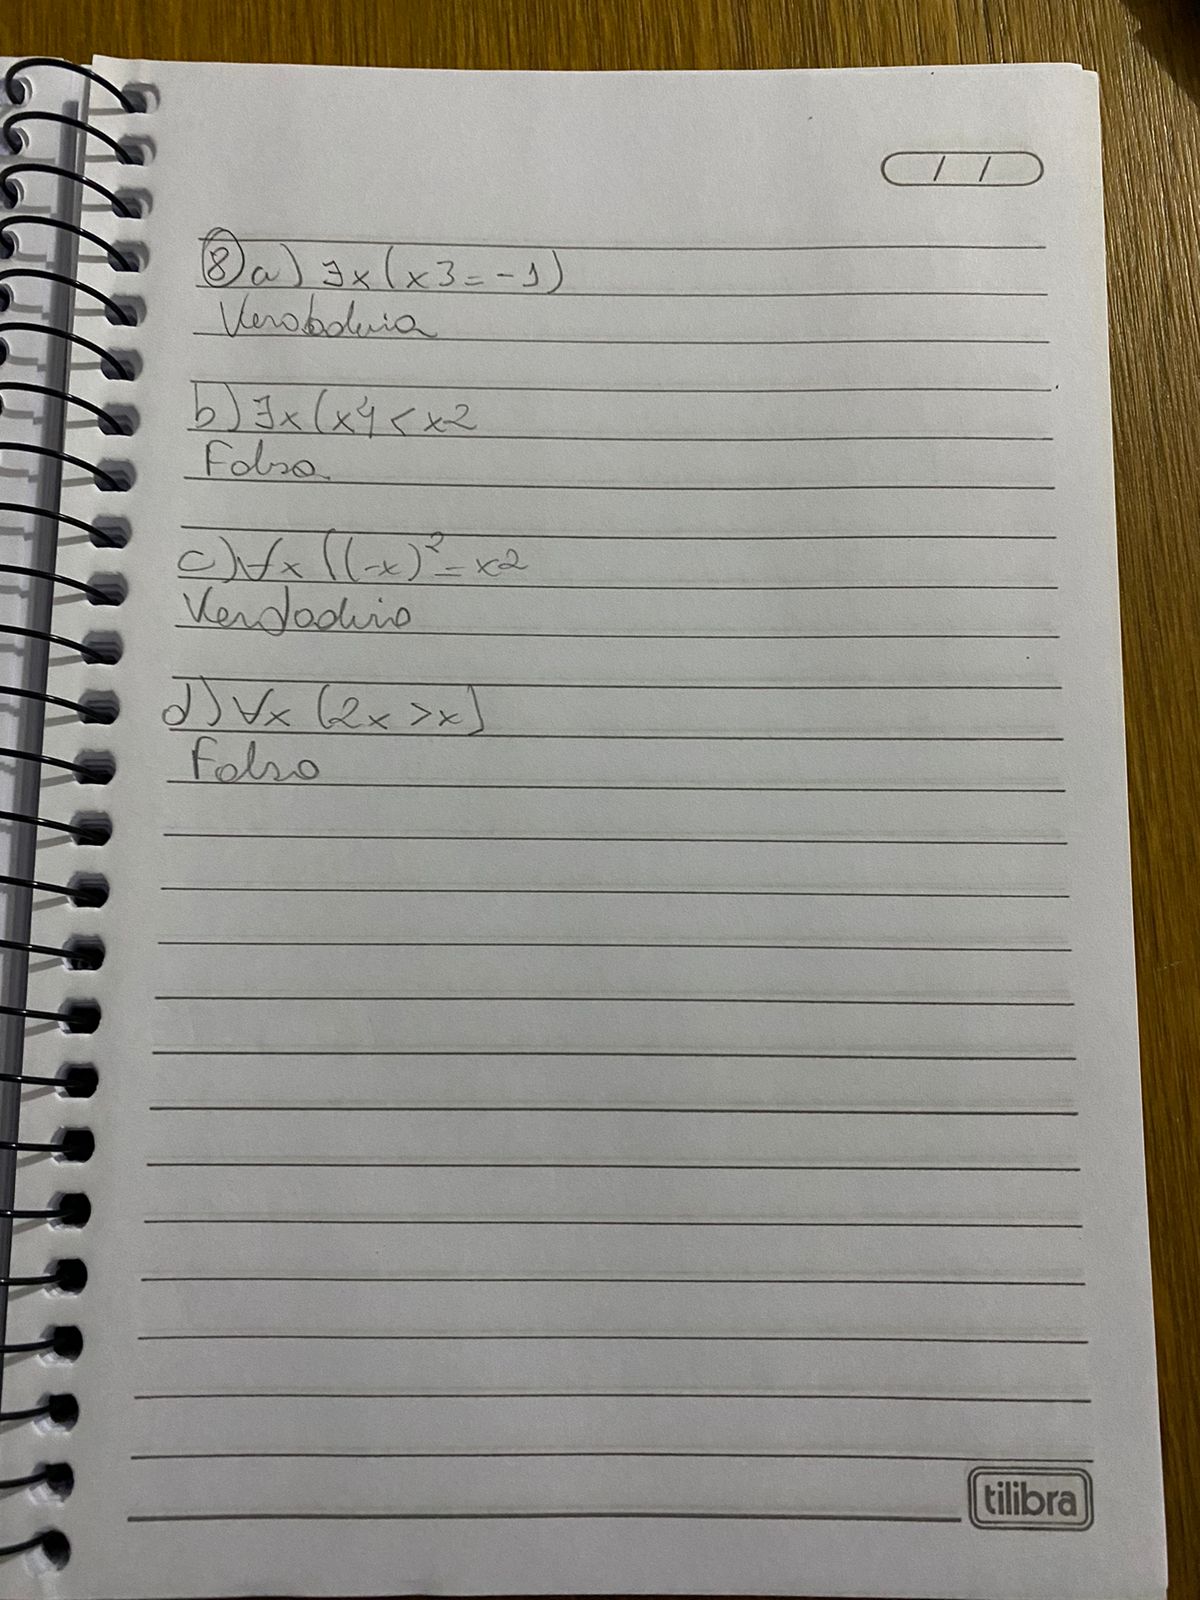 / /
8) a) ∃x (x3 = -1)
Verdadeira
b) ∃x (x4 < x2
Falsa
c) ∀x ((-x)² = x2
Verdadeiro
d) ∀x (2x > x)
Falso
tilibra